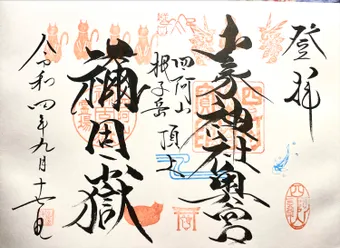 登拝
山家神社奥宮
四阿山 頂上
根子岳
禰固嶽
令和四年九月十七日